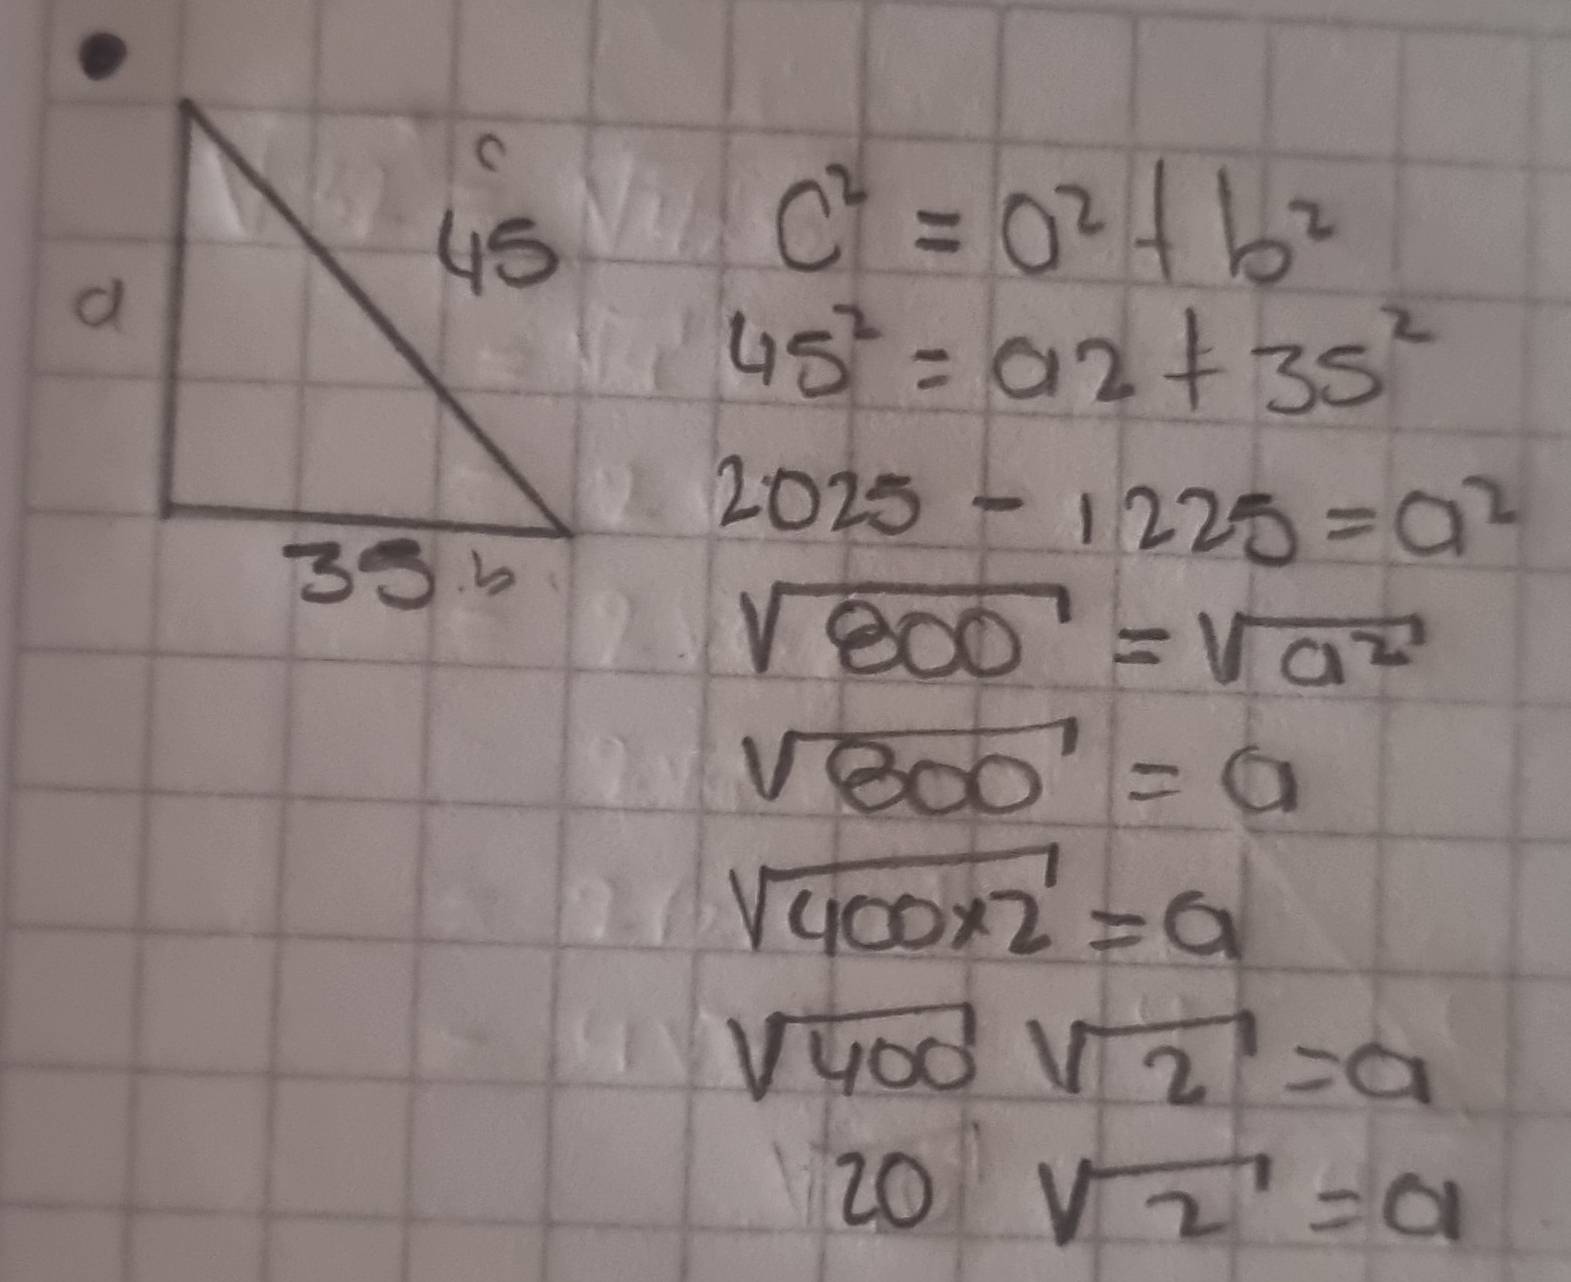 c
45
a
35 b
C² = a² + b²
45² = a2 + 35²
2025 - 1225 = a²
√800 = √a²
√800 = a
√400x2 = a
√400 √2 = a
20 √2 = a